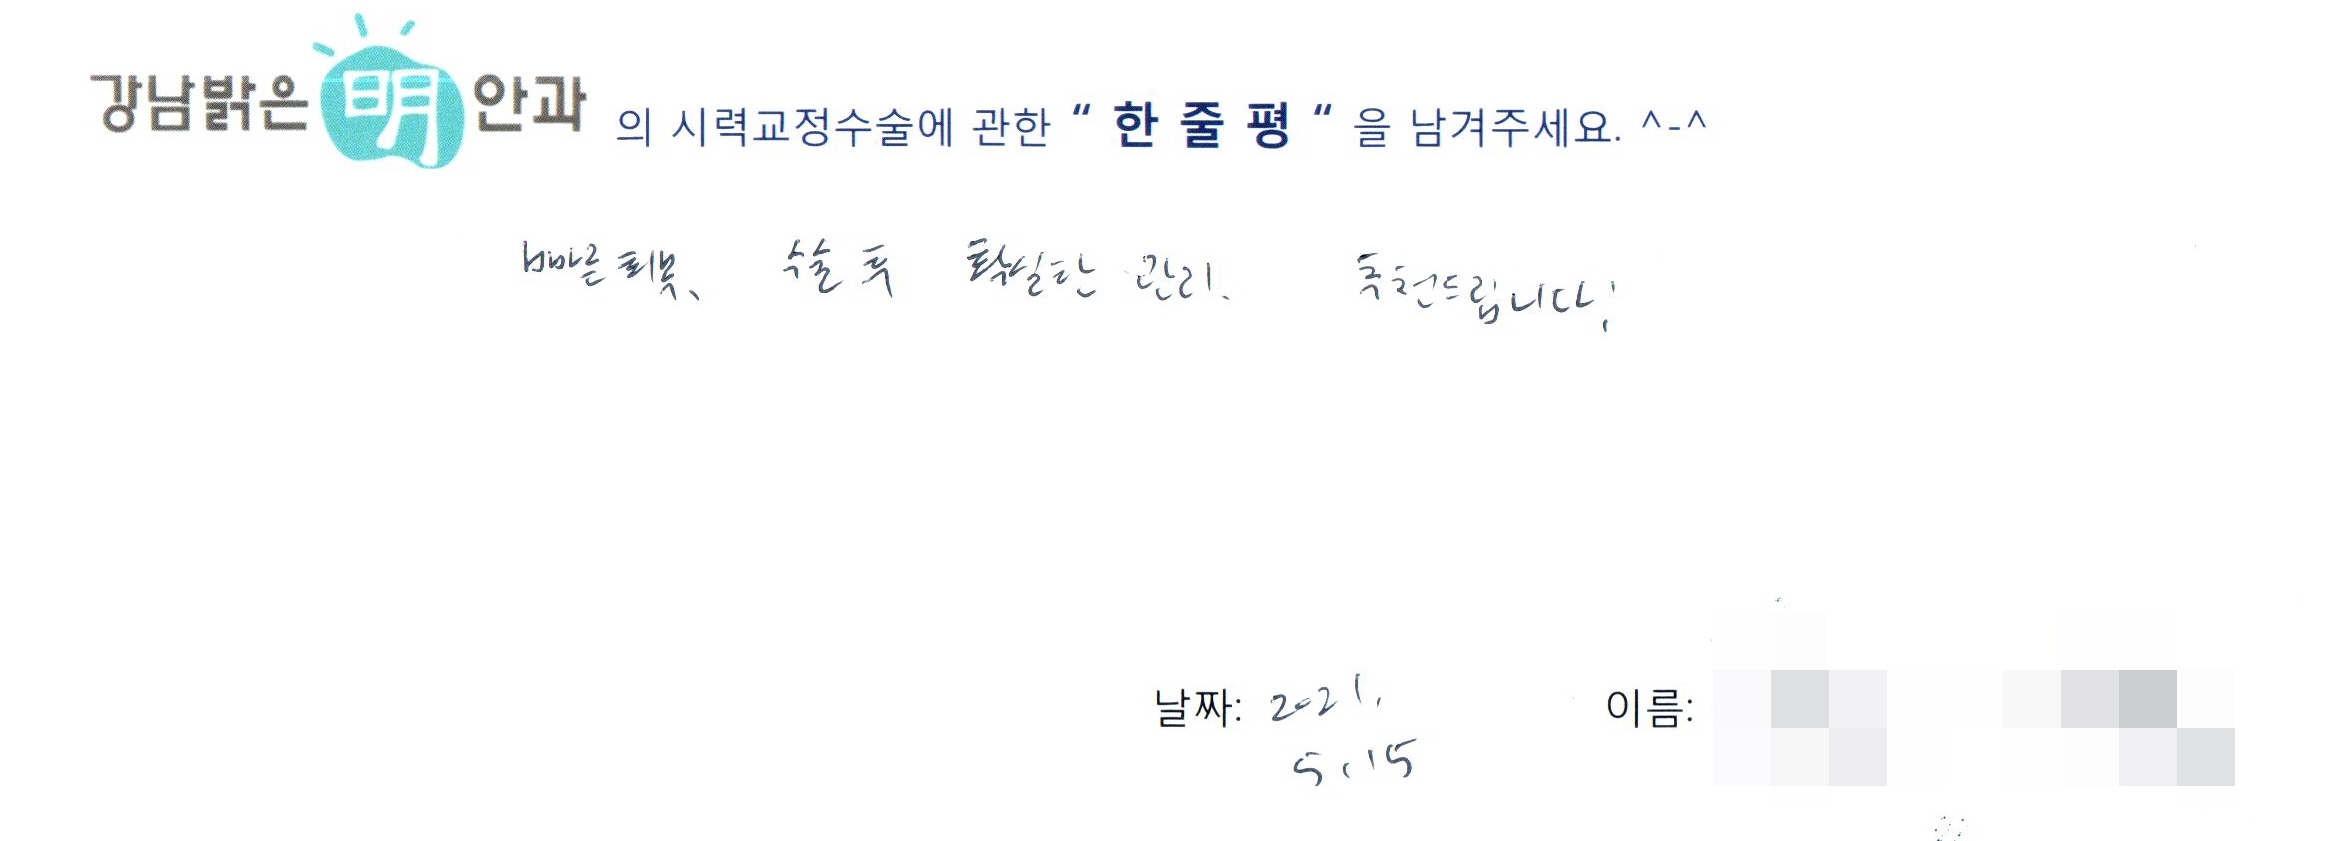 강남밝은明안과 의 시력교정수술에 관한 “ 한 줄 평 “ 을 남겨주세요. ^-^
빠른 회복, 수술 후 확실한 관리. 추천드립니다!
날짜: 2021. 이름:
5.15